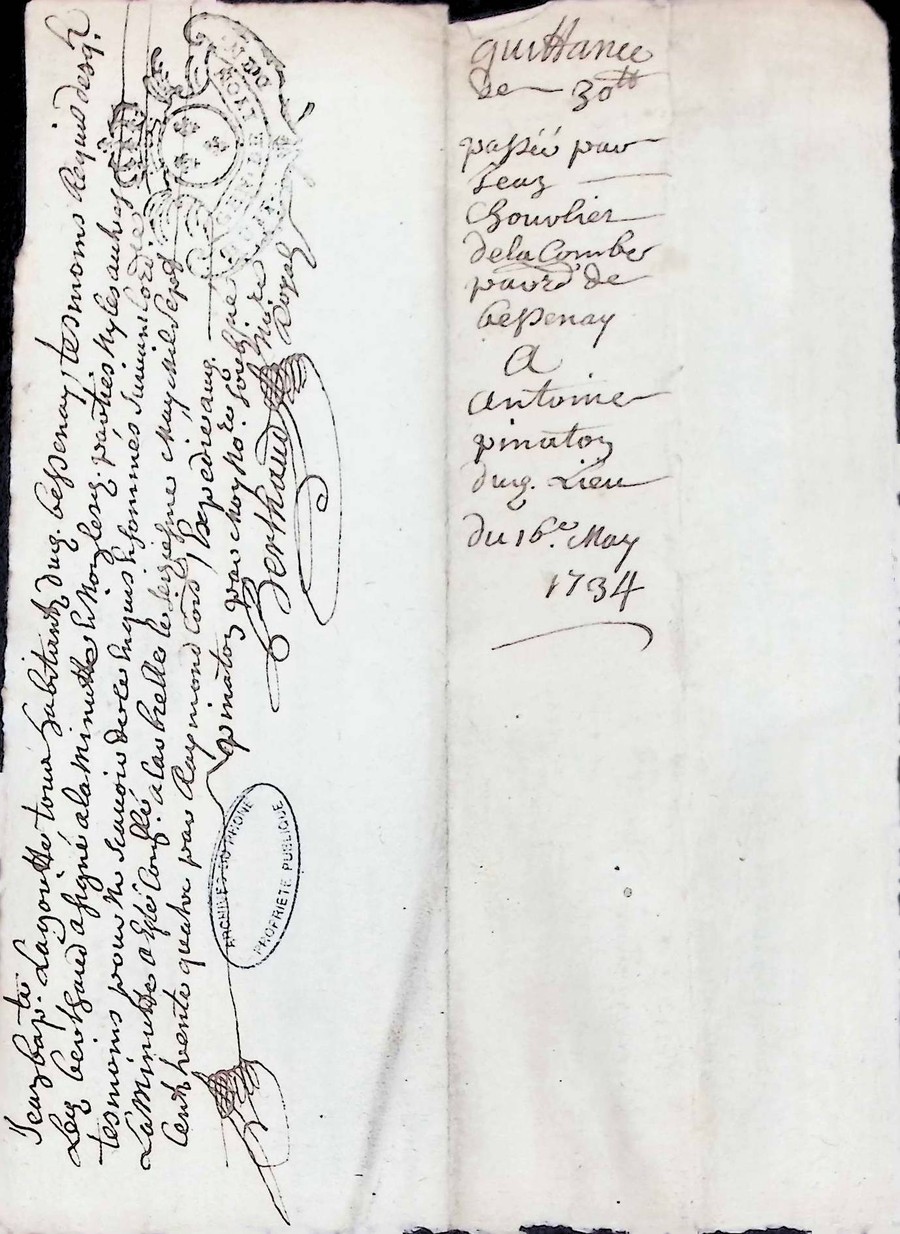 Jean bap.te Layotte tous habitants dud. bessenay tesmoins Requis desq.
Led. berthaud a signé a la minutte & Non lesd. parties Ny les autres
tesmoins pour Ne scavoir de ce enquis & sommés suivant lord.ce
La Minutte a esté Conllé a Larbrelle le seizieme May Mil Sept
Cent trente quatre par Raymond Cons Expedié aud.
pinaton par Moy No.re soubsigné
Berthaud No.re Royal
GEN DE LYON
ARCHIVES DU RHONE
PROPRIETE PUBLIQUE
quittance
de 30tt
passéé par
Jean
Chouvlier
dela Combe
parr.d de
bessenay
A
Antoine
pinaton
dud. Lieu
du 16.e May
1734